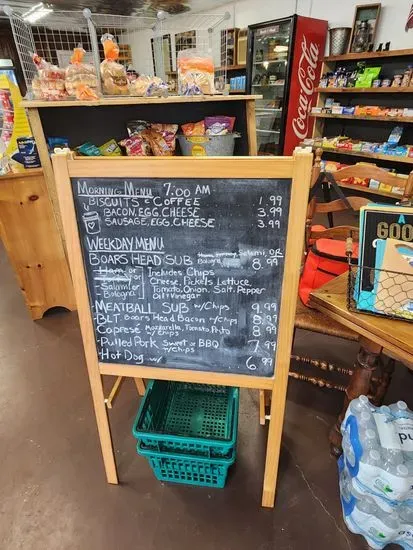 Morning Menu 7:00 AM
BISCUITS & COFFEE 1.99
BACON, EGG, CHEESE 3.99
SAUSAGE, EGG, CHEESE 3.99
WEEKDAY MENU
BOARS HEAD SUB Ham, Turkey, Salami, OR Bologna 8.99
Ham or Salami or Bologna
Includes Chips
Cheese, Pickles Lettuce
Tomato, Onion, Salt, Pepper
Oil & Vinegar
MEATBALL SUB w/Chips 9.99
BLT Boars Head Bacon w/Chips 8.99
Coprese Mozzarella, Tomato, w/Chips 8.99
Pulled Pork Sweet or BBQ w/Chips 7.99
Hot Dog w/ 6.99
Coca-Cola
A
GOO